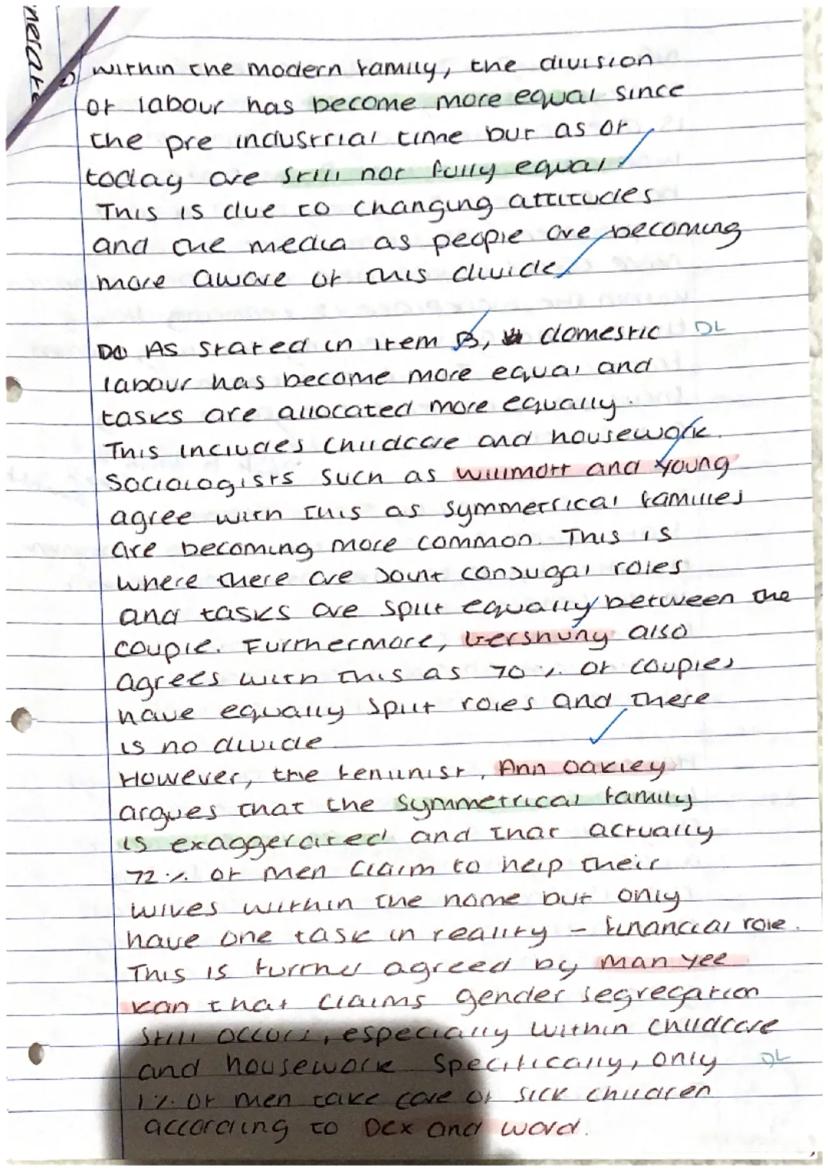 within the modern family, the division
of labour has become more equal since
the pre industrial time but as of
today are still not fully equal.
This is due to changing attitudes
and the media as people are becoming
more aware of this divide
As stated in item B, domestic DL
labour has become more equal and
tasks are allocated more equally.
This includes childcare and housework.
Sociologists such as Willmott and Young
agree with this as symmetrical families
are becoming more common. This is
where there are joint conjugal roles
and tasks are split equally between the
couple. Furthermore, Gershuny also
agrees with this as 70% of couples
have equally split roles and there
is no divide
However, the feminist, Ann Oakley
argues that the symmetrical family
is exaggerated and that actually
72% of men claim to help their
wives within the home but only
have one task in reality - financial role.
This is further agreed by Man yee
Kan that claims gender segregation
still occurs, especially within childcare
and housework specifically, only DL
1% of men take care of sick children
according to Dex and Ward.